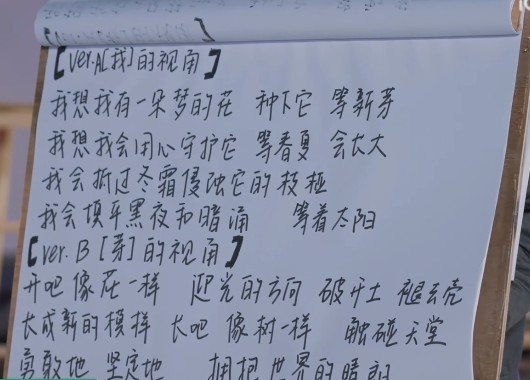 【ver.A[我]的视角】
我想我有一朵梦的花 种下它 等新芽
我想我会用心守护它 等春夏 会长大
我会折过冬霜侵蚀它的枝桠
我会填平黑夜和暗涌 等着太阳
【ver.B[芽]的视角】
开吧像花一样 迎光的方向 破开土 褪去壳
长成新的模样 长吧 像树一样 触碰天堂
勇敢地 坚定地 拥抱世界的晴朗